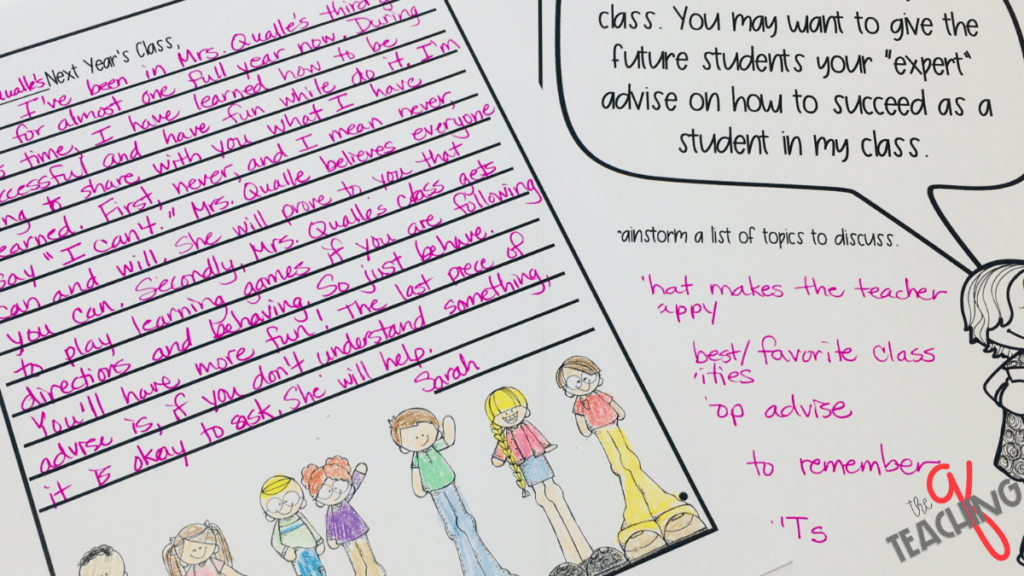 Qualle's Next Year's Class,
I've been in Mrs. Qualle's third g
for almost one full year now. During
s time, I have learned how to be
ccessful and have fun while do it. I'm
ng to share with you what I have
earned. First, never, and I mean never,
say "I can't." Mrs. Qualle believes everyone
can and will. She will prove to you that
you can. Secondly, Mrs. Qualle's class gets
to play learning games if you are following
directions and behaving. So just behave.
You'll have more fun! The last piece of
advise is, if you don't understand something,
it is okay to ask. She will help.
Sarah
class. You may want to give the
future students your "expert"
advise on how to succeed as a
student in my class.
ainstorm a list of topics to discuss.
hat makes the teacher
appy
best/favorite class
ities
op advise
to remember
'Ts
the
TEACHING